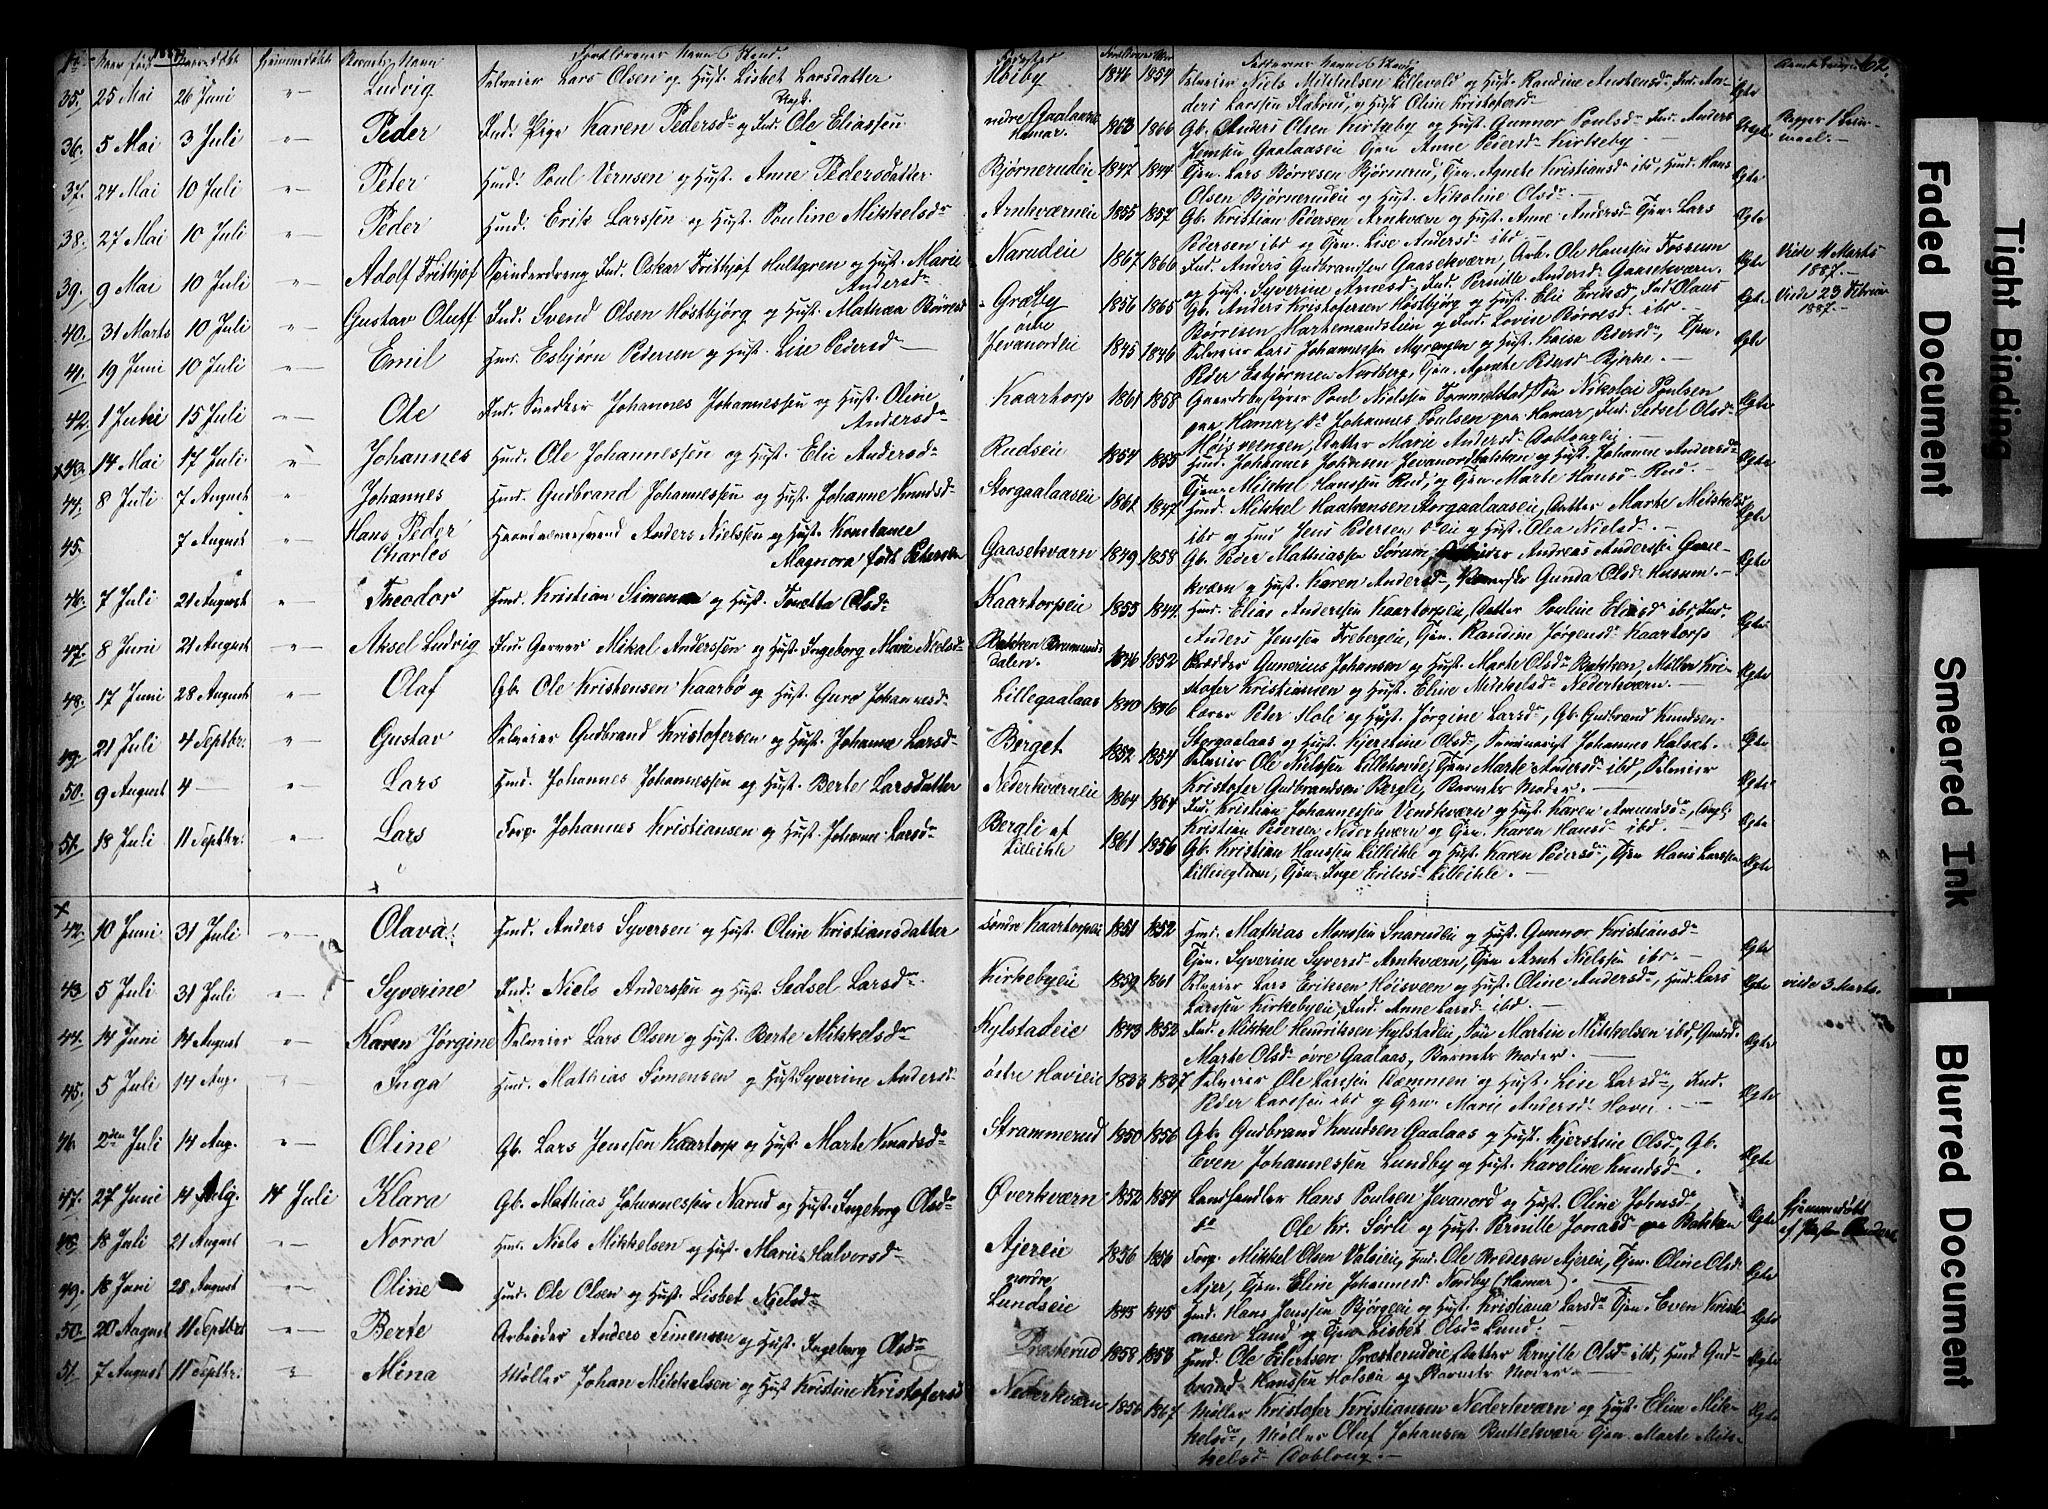 Ludvig
35. 25 Mai 26 Juni Selveier Lars Olsen og Hust. Lisbet Larsdatter Høiby 1846 1854 Selveier Niels Mikkelsen Lillevold og Hust. Randine
Uægt.
36. 5 Mai 3 Juli Peder Ind. Pige Karen Pedersdr og Ind. Ole Eliassen Gaalaasen Hamar. 1863 1866 Gb. Anders Olsen Kirkeby og Hust. Gunnor Poulsd. Ind. Anders
Jensen Gaalaaseie Tjen Anne Pedersd. Kirkeby
37. 24 Mai 10 Juli Peter Hmd. Poul Arnsen og Hust. Anne Pedersdatter Bjørnerudeie 1847 1844 Tjen. Lars Børresen Bjørnerud, Tjen. Agnete Kristiansdr ibd, Hmd. Hans Ægte
Olsen Bjørnerudeie og Hust. Nikoline Olsdr
38. 27 Mai 10 Juli Peder Hmd. Erik Larssen og Hust. Pouline Mikkelsdr Arnkværneie 1855 1857 Gb. Kristian Pedersen Arnkværn og Hust. Anne Andersdr Tjen. Lars Ægte
Pedersen ibd og Tjen. Lise Andersdr ibd
39. 9 Mai 10 Juli Adolf Frithjof Ind. Oskar Frithjof Hultgren og Hust. Marie Andersdr Narudeie 1867 1866 Ind. Anders Gudbrandsen Gaasekværn, Arb. Ole Hanssen Fossum Ægte Viede 4 Marts 1887.
og Hust. Syverine Arnesdr, Ind. Pernille Andersdr Gaasekværn.
40. 31 Marts 10 Juli Gustav Oluff Ind. Svend Olsen Höstbjörg og Hust. Mathea Børresd Græby 1856 1865 Gb. Anders Kristofersen Höstbjörg og Hust. Elie Eriksd, Ind Olaus Ægte Viede 23 Februar 1887.
Børresen og Ind. Lovise Børresd ibd.
41. 19 Juni 10 Juli Emil Hmd. Esbjørn Pedersen og Hust. Lise Pedersd østre Jevanordeie 1845 1846 Selveier Lars Johannessen Myrengen og Hust. Kaisa Pedersdr, Tjen. Ægte
Peder Esbjørnsen Nordberg, Tjen. Agnete Pedersd Bjerke.
42. 1 Juni 15 Juli Ole Ind. Snedker Johannes Johannessen og Hust. Oline Andersdr Kaartorp 1861 1858 Gaardbestyrer Poul Nielsen Tommelstad, Søn Nikolai Poulsen Ægte
paa Hamar, do Johannes Poulsen paa Hamar, Ind. Sedsel Olsdr
Høisveengen, Datter Marie Andersdr
43. 14 Mai 17 Juli Johannes Hmd. Ole Johannessen og Hust. Elie Andersdr Rudseie 1854 1855 Hmd. Johannes Johnsen Jevanordbakken og Hust. Johanne Andersdr Ægte
Tjen. Mikkel Hanssen Rud, og Tjen. Marte Hansd. Rud
44. 8 Juli 7 August Johannes Hmd. Gudbrand Johannessen og Hust. Johanne Knudsd Storgaalaaseie 1861 1847 Hmd. Mikkel Haakensen Storgaalaaseie, Datter Marte Mikkelsd Ægte
ibd og Hmd Jens Pedersen og Hust. Olea Nielsdr.
45. 7 August Hans Peder Charles Haandværkssvend Anders Nielssen og Hust. Konstance Magnora født Petersen Gaasekværn 1849 1858 Gb. Peder Mathiassen Sørum, Andreas Anderssen Gaase- Ægte
kværn og Hust. Karen Andersd, Gunda Olsd Husum.
46. 7 Juli 21 August Theodor Hmd. Kristian Simensen og Hust. Toretta Olsdr Kaartorpeie 1855 1844 Hmd. Elias Anderssen Kaartorpeie, Datter Pouline Eliasd ibd, Ind. Ægte
Anders Jenssen Frebergeie, Tjen. Randine Jørgensdr Kaartorp
47. 8 Juni 21 August Aksel Ludvig Ind. Garver Mikal Anderssen og Hust Ingeborg Marie Nielsdr Bakken Brummunddalen. 1846 1852 Gunerius Johansen og Hust. Marte Olsdr Bakken, Møller Kri- Ægte
stofer Kristiansen og Hust. Eline Mikkelsdr Nederkværn.
48. 17 Juni 28 August Olaf Gb. Ole Kristensen Kaarbø og Hust. Guro Johannesdr Lillegaalaas 1840 1846 Lærer Peter Hole og Hust. Jørgine Larsdr, Gb. Gudbrand Knudsen Ægte
Storgaalaas og Hust. Kjerstine Olsdr, Seminarist Johannes Halset.
49. 21 Juli 4 Septbr. Gustav Selveier Gudbrand Kristofersen og Hust. Johanne Larsdr Berget 1852 1854 Selveier Ole Nielssen Lillehovde, Tjen. Marte Andersdr ibd, Selveier Ægte
Kristofer Gudbrandsen Bergli, Barnets Moder.
50. 9 August 4 Lars Hmd. Johannes Johannessen og Hust. Berte Larsdatter Nederkværneie 1864 1864 Ind. Kristian Johannessen Vendkværn og Hust. Karen Amundsdr, Ægte
Kristian Pedersen Nederkværn og Tjen. Karen Hansd ibd.
51. 18 Juli 11 Septbr. Lars Forp. Johannes Kristiansen og Hust. Johanne Larsdr Bergli af Lilleihle 1861 1856 Gb. Kristian Hanssen Lilleihle og Hust. Karen Pedersdr, Tjen Hans Larssen Ægte
Tjen. Inge Eriksdr Lilleihle.
42. 10 Juni 31 Juli Olava Hmd. Anders Syversen og Hust. Oline Kristiansdatter søndre Kaartorpeie 1851 1852 Hmd. Mathias Monssen Snarudeie og Hust. Gunnor Kristiansdr Ægte
Tjen. Syverine Syversdr Arnkværn, Tjen Arnt Nielssen ibd.
43. 5 Juli 31 Juli Syverine Ind. Niels Anderssen og Hust. Sedsel Larsdr Kirkebyeie 1859 1861 Selveier Lars Eriksen Höisveen og Hust. Oline Andersdr, Hmd. Lars Ægte viede 3 Marts.
Larssen Kirkebyeie, Ind. Anne Larsdr ibd.
44. 14 Juni 14 August Karen Jørgine Selveier Lars Olsen og Hust. Berte Mikkelsdr Kylstadeie 1843 1852 Ind. Mikkel Henriksen Kylstadeie, Søn Martin Mikkelsen ibd, Ægte
Marte Olsdr øvre Gaalaas, Barnets Moder.
45. 5 Juli 14 Aug. Inga Hmd. Mathias Simensen og Hust Syverine Andersdr østre Hovieie 1833 1837 Selveier Ole Larssen Dæmmen og Hust. Lise Larsdr, Ind. Ægte
Peder Larssen ibd og Tjen. Marie Andersdr Hovie.
46. 2den Juli 14 Aug. Oline Gb. Lars Jenssen Kaartorp og Hust. Marte Knudsdr Strammerud 1850 1856 Gb. Gudbrand Knudsen Gaalaas og Hust. Kjerstine Olsdr, Gb. Ægte
Even Johannessen Lundby og Hust. Karoline Knudsd.
47. 27 Juni 14 Aug. 14 Juli Klara Gb. Mathias Johannessen Narud og Hust. Ingeborg Olsdr Øverkværn 1852 1854 Landhandler Hans Poulsen Jevanord og Hust. Oline Johnsdr Ægte Hjemmedöbt
do Ole Kr. Sørli og Hust. Pernille Jonasd paa Bakken
48. 18 Juli 21 August Norra Hmd. Niels Mikkelsen og Hust. Marie Halvorsdr Ajereie 1856 1856 Forp. Mikkel Olsen Valseie, Ind. Ole Brodersen Ajereie, Tjen. Oline Olsd Ægte
Ajer, Tjen. Eline Johannesd. Nordby (Hamar).
49. 18 Juni 28 August Oline Hmd. Ole Olsen og Hust. Lisbet Nielsdr nordre Lundseie 1845 1845 Hmd. Hans Jenssen Bjørgeie og Hust. Kristiana Larsdr Tjen. Even Kristi- Ægte
ansen Lund og Tjen Lisbet Olsdr Lund.
50. 20 August 11 Septbr Berte Arbeider Anders Simensen og Hust. Ingeborg Olsdr Præsterud 1858 1853 Hmd. Ole Eilertsen Præsterudeie, Datter Pernille Olsdr ibd, Hmd Gud- Ægte
brand Hanssen og Barnets Moder.
51. 7 August 11 Septbr. Mina Møller Johan Mikkelsen og Hust Kristine Kristofersd Nederkværn 1856 1867 Møller Kristofer Kristiansen Nederkværn og Hust. Eline Mik- Ægte
kelsdr, Møller Oluf Johansen Tjen. Marte Mik-
kelsdr
Faded Document
Tight Binding
Smeared Ink
Blurred Document